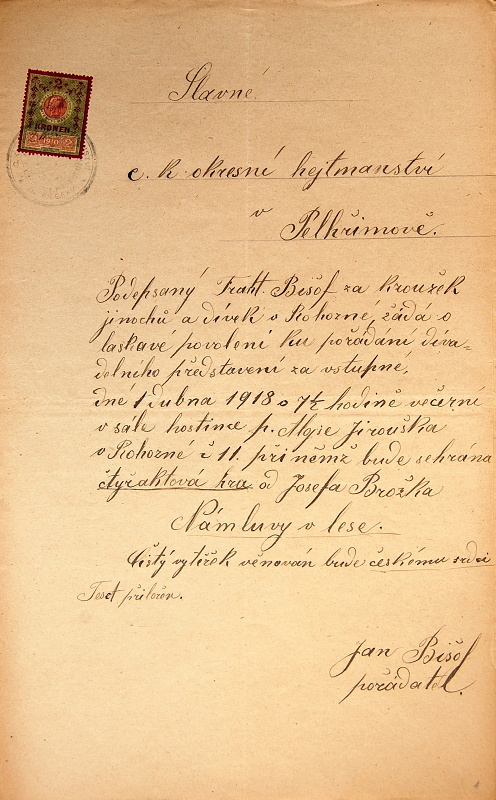 2
KRONEN
1910
Slavné
c. k. okresní hejtmanství
v
Pelhřimově.
Podepsaný Frant. Bišof za kroužek
jinochů a dívek v Rohozné, žádá o
laskavé povolení ku pořádání diva-
delního představení za vstupné,
dné 1 dubna 1918 o 7½ hodině večerní
v sale hostince p. Jirouška
v Rohozné č 11. při němž bude sehrána
čtyřaktová hra od Josefa Brožka
Námluvy v lese.
Čistý vytížek věnován bude českému srdci
přiložen.
Jan Bišof
pořádatel.